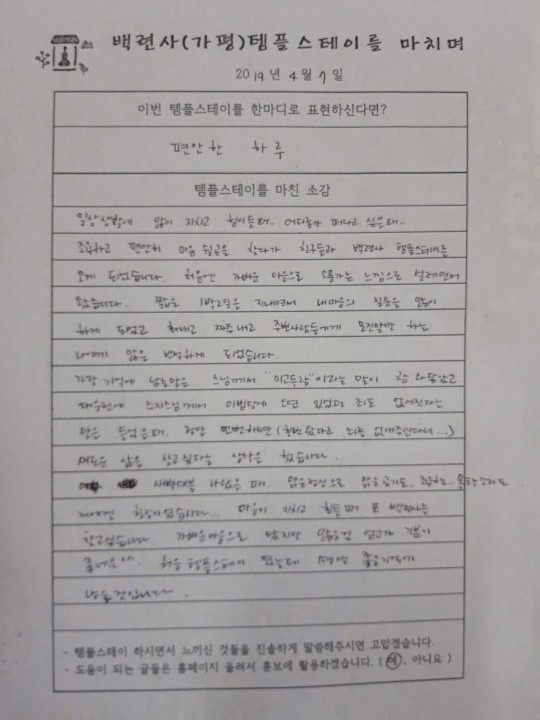 백련사(가평)템플스테이를 마치며
2019년 4월 7일
이번 템플스테이를 한마디로 표현하신다면?
편안한 하루
템플스테이를 마친 소감
일상생활에 많이 지치고 힘이들때.. 어디론가 떠나고 싶은때..
조용하고 편안히 마음 쉴곳을 찾다가 친구들과 백련사 템플스테이를
오게 되었습니다. 처음엔 가벼운 마음으로 소풍가는 느낌으로 설레면서
왔습니다. 짧은 1박2일을 지내면서 내마음의 질문을 많이
하게 되었고 화내고 짜증내고 주변사람들에게 못된말만 하는
나에게 많은 반성하게 되었습니다.
가장 기억에 남는말은 스님께서 "이고득락"이라는 말이 참 와닿았고
주지스님께서 이법당에 오면 있었던 죄도 없어진다는
말을 들었을때,
새로운 삶을 살고싶다는 생각을 했습니다.
새벽예불 나왔을 때,
마음이 지치고 힘든때 또 백련사를
찾고싶습니다. 가벼운마음으로 왔지만 많은걸 얻고가 기분이
좋네요^^ 처음 템플스테이 였는데 평생 좋은기억이
남을것입니다.
- 템플스테이 하시면서 느끼신 것들을 진솔하게 말씀해주시면 고맙겠습니다.
- 도움이 되는 글들은 홈페이지 올려서 홍보에 활용하겠습니다. ( 예, 아니요 )